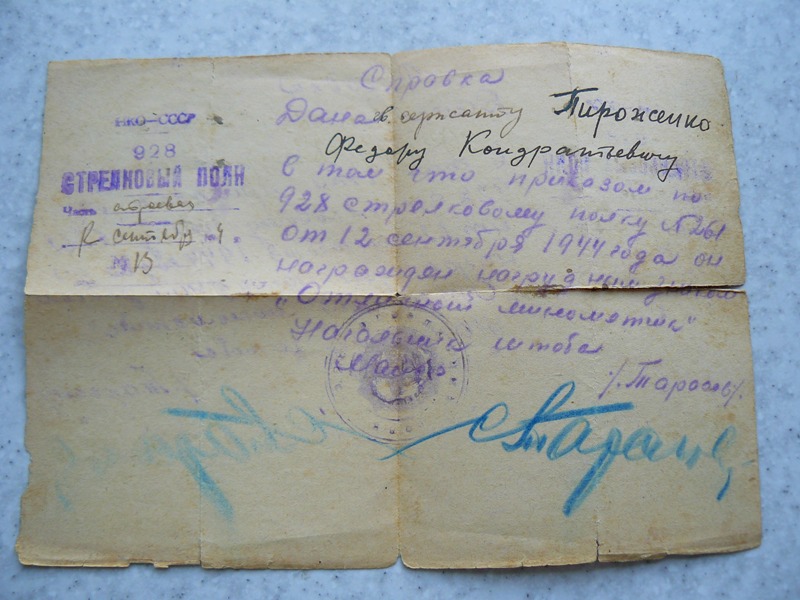 Справка
НКО-СССР
928
СТРЕЛКОВЫЙ ПОЛК
сентября
№ 13
Дана гв. сержанту Пироженко
Федору Кондратьевичу
в том что приказом по
928 стрелковому полку №261
от 12 сентября 1944 года он
награжден нагрудным знаком
"Отличный минометчик"
Начальник штаба
Майор
/.Тарасов/.